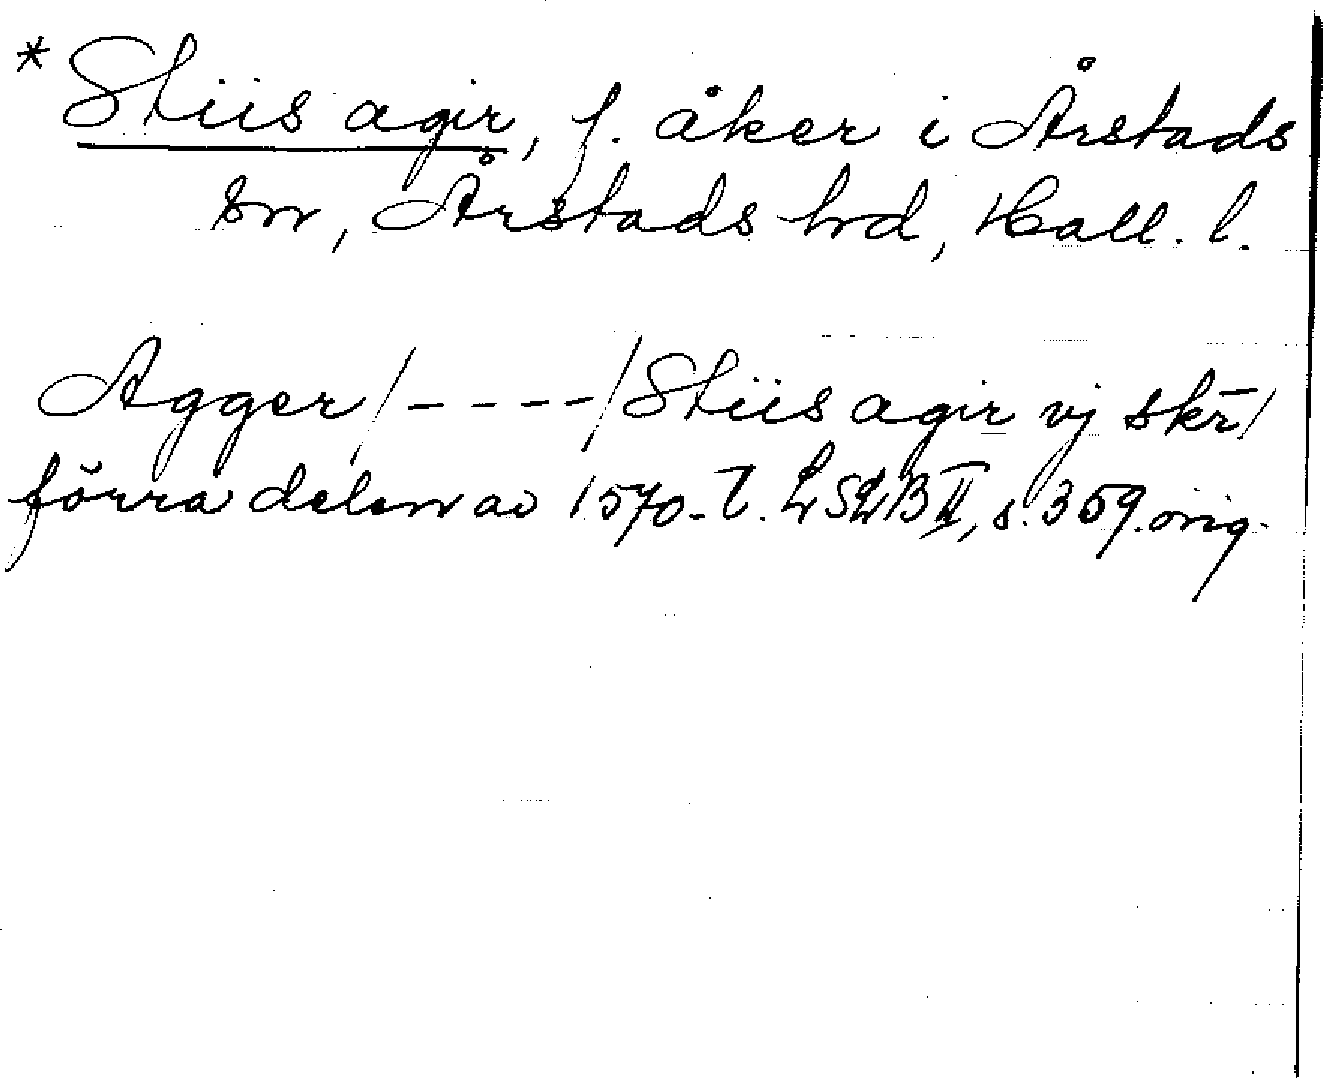 * Stiis agir, f. åker i Årstads
sn, Årstads hd, Hall. l.
Agger /----/ Stiis agir vj skr̄/
förra delen av 1570-t. LSLB II, s. 359. orig.